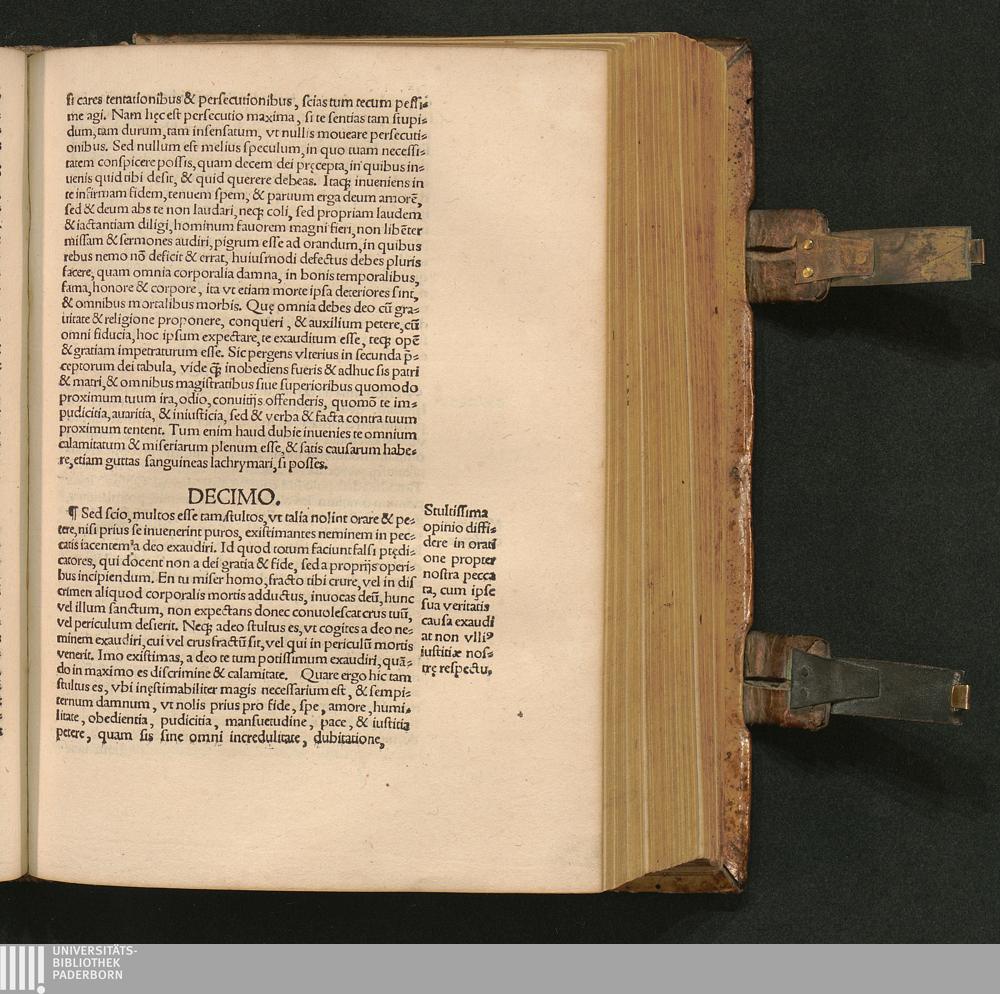 ſi cares tentationibus & perſecutionibus, ſcias tum tecum peſſi⸗
me agi. Nam hęc eſt perſecutio maxima, ſi te ſentias tam ſtupi⸗
dum, tam durum, tam inſenſatum, vt nullis moueare perſecuti⸗
onibus. Sed nullum eſt melius ſpeculum, in quo tuam neceſſi⸗
tatem conſpicere poſſis, quam decem dei pręcepta, in quibus in⸗
uenis quid tibi deſit, & quid querere debeas. Itaqꝫ inueniens in
te infirmam fidem, tenuem ſpem, & paruum erga deum amorē,
ſed & deum abs te non laudari, neqꝫ coli, ſed propriam laudem
& iactantiam diligi, hominum fauorem magni fieri, non libēter
miſſam & ſermones audiri, pigrum eſſe ad orandum, in quibus
rebus nemo nō deficit & errat, huiuſmodi defectus debes pluris
facere, quam omnia corporalia damna, in bonis temporalibus,
fama, honore & corpore, ita vt etiam morte ipſa deteriores ſint,
& omnibus mortalibus morbis. Quę omnia debes deo cū gra⸗
uitate & religione proponere, conqueri, & auxilium petere, cū
omni fiducia, hoc ipſum expectare, te exauditum eſſe, teqꝫ opē
& gratiam impetraturum eſſe. Sic pergens vlterius in ſecunda p̄⸗
ceptorum dei tabula, vide qꝫ̄ inobediens fueris & adhuc ſis patri
& matri, & omnibus magiſtratibus ſiue ſuperioribus quomodo
proximum tuum ira, odio, conuitijs offenderis, quomō te im⸗
pudicitia, auaritia, & iniuſticia, ſed & verba & facta contra tuum
proximum tentent. Tum enim haud dubie inuenies te omnium
calamitatum & miſeriarum plenum eſſe, & ſatis cauſarum habe⸗
re, etiam guttas ſanguineas lachrymari, ſi poſſes.
DECIMO.
¶ Sed ſcio, multos eſſe tam ſtultos, vt talia nolint orare & pe⸗
tere, niſi prius ſe inuenerint puros, exiſtimantes neminem in pec⸗
catis iacentem a deo exaudiri. Id quod totum faciunt falſi prędi⸗
catores, qui docent non a dei gratia & fide, ſed a proprijs operi⸗
bus incipiendum. En tu miſer homo, fracto tibi crure, vel in diſ
crimen aliquod corporalis mortis adductus, inuocas deū, hunc
vel illum ſanctum, non expectans donec conuoleſcat crus tuū,
vel periculum deſierit. Neqꝫ adeo ſtultus es, vt cogites a deo ne⸗
minem exaudiri, cui vel crus fractū ſit, vel qui in periculū mortis
venerit. Imo exiſtimas, a deo te tum potiſſimum exaudiri, quā⸗
do in maximo es diſcrimine & calamitate. Quare ergo hic tam
ſtultus es, vbi inęſtimabiliter magis neceſſarium eſt, & ſempi⸗
ternum damnum, vt nolis prius pro fide, ſpe, amore, humi⸗
litate, obedientia, pudicitia, manſuetudine, pace, & iuſtitia
petere, quam ſis ſine omni incredulitate, dubitatione,
Stultiſſima
opinio diffi⸗
dere in orati
one propter
noſtra pecca
ta, cum ipſe
ſua veritatis
cauſa exaudi
at non vlliꝰ
iuſtitiæ noſ⸗
trę reſpectu.
UNIVERSITÄTS-
BIBLIOTHEK
PADERBORN